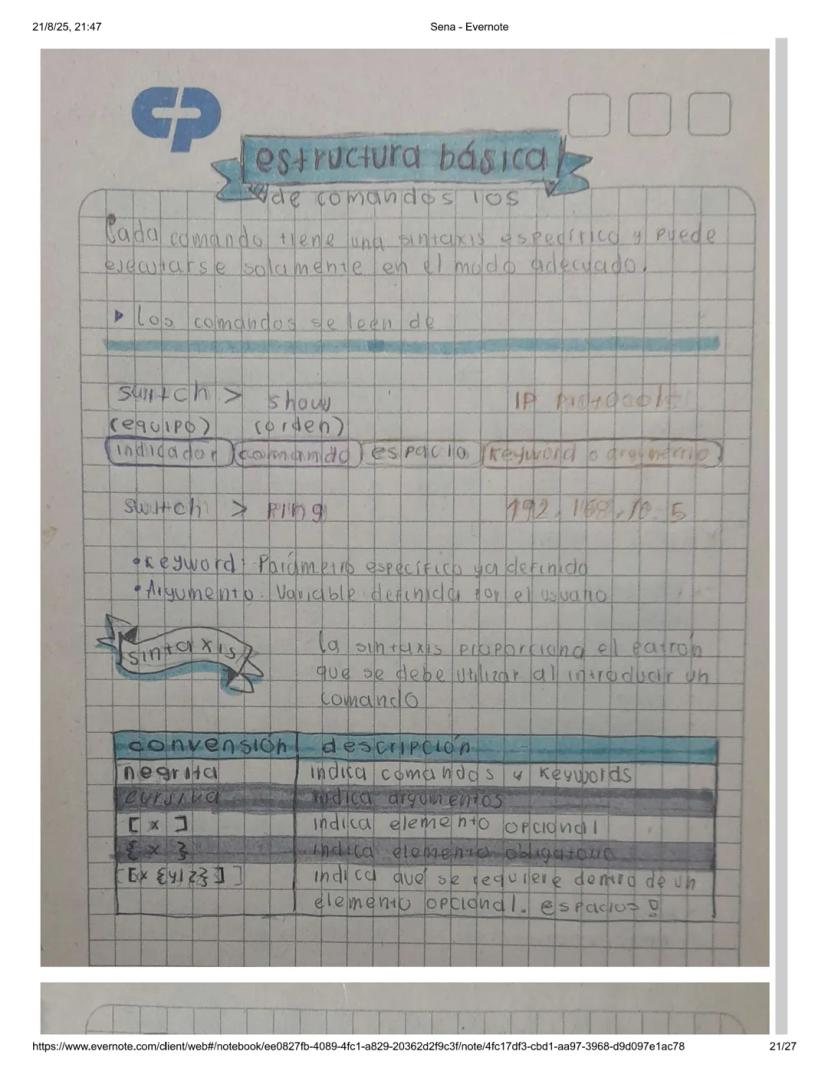 21/8/25, 21:47
Sena - Evernote
estructura básica
de comandos ios
Cada comando tiene una sintaxis específica y puede
ejecutarse solamente en el modo adecuado.
Los comandos se leen de
switch > show IP
(equipo) (orden)
indicador comando espacio keyword o argumento
switch > Ping 192.168.10.5
• Keyword: Parámetro específico ya definido
• Argumento. Variable definida por el usuario
sintaxis
la sintaxis proporciona el patrón
que se debe utilizar al introducir un
comando
convensión descripción
negrita indica comandos y Keywords
cursiva indica argumentos
[x] indica elemento opcional
{x} indica elemento obligatorio
[x {y|z}] indica que se requiere dentro de un
elemento opcional. espacios
https://www.evernote.com/client/web#/notebook/ee0827fb-4089-4fc1-a829-20362d2f9c3f/note/4fc17df3-cbd1-aa97-3968-d9d097e1ac78
21/27